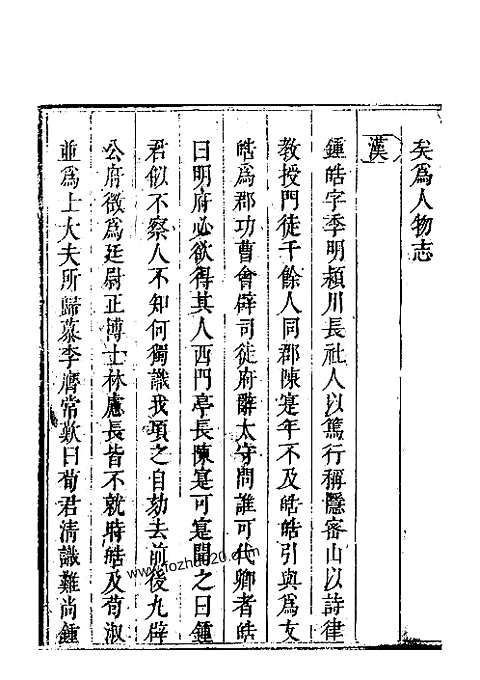 矣爲人物志
漢
鍾皓字季明潁川長社人以篤行稱隱密山以詩律
教授門徒千餘人同郡陳寔年不及皓皓引與爲友
皓爲郡功曹會辟司徒府辭太守問誰可代卿者皓
曰明府必欲得其人西門亭長陳寔可寔聞之曰鍾
君似不察人不知何獨識我頃之自劾去前後九辟
公府徵爲廷尉正博士林慮長皆不就時皓及荀淑
並爲士大夫所歸慕李膺常歎曰荀君清識難尚鍾
www.fozhu920.com